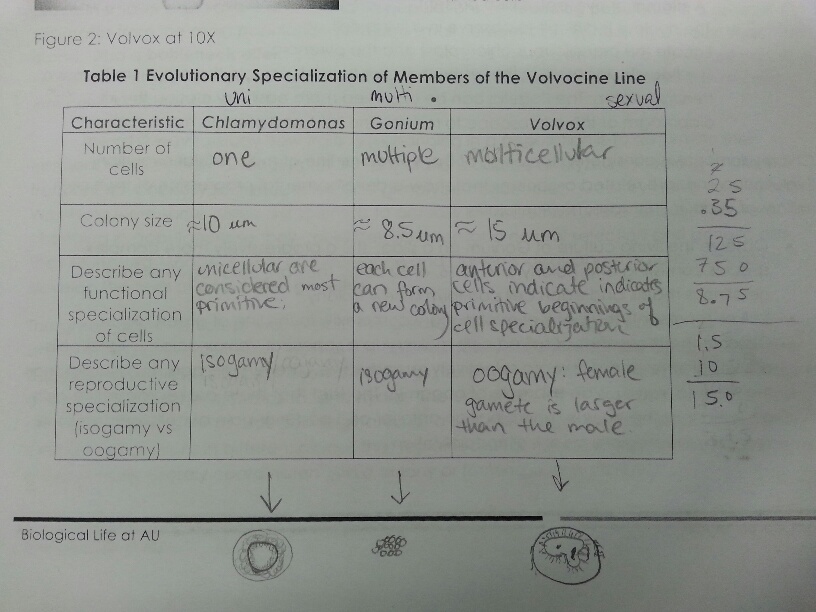 Figure 2: Volvox at 10X
Table 1 Evolutionary Specialization of Members of the Volvocine Line
uni multi . sexual
Characteristic Chlamydomonas Gonium Volvox
Number of one multiple multicellular
cells
Colony size ≈10 um ≈ 8.5um ≈ 15 um
Describe any
functional
specialization
of cells
unicellular are
considered most
primitive;
each cell
can form
a new colony
anterior and posterior
cells indicate indicates
primitive beginnings of
cell specialization
Describe any
reproductive
specialization
(isogamy vs
oogamy)
isogamy
isogamy
oogamy: female
gamete is larger
than the male.
2
25
.35
125
750
8.75
1.5
10
15.0
Biological Life at AU